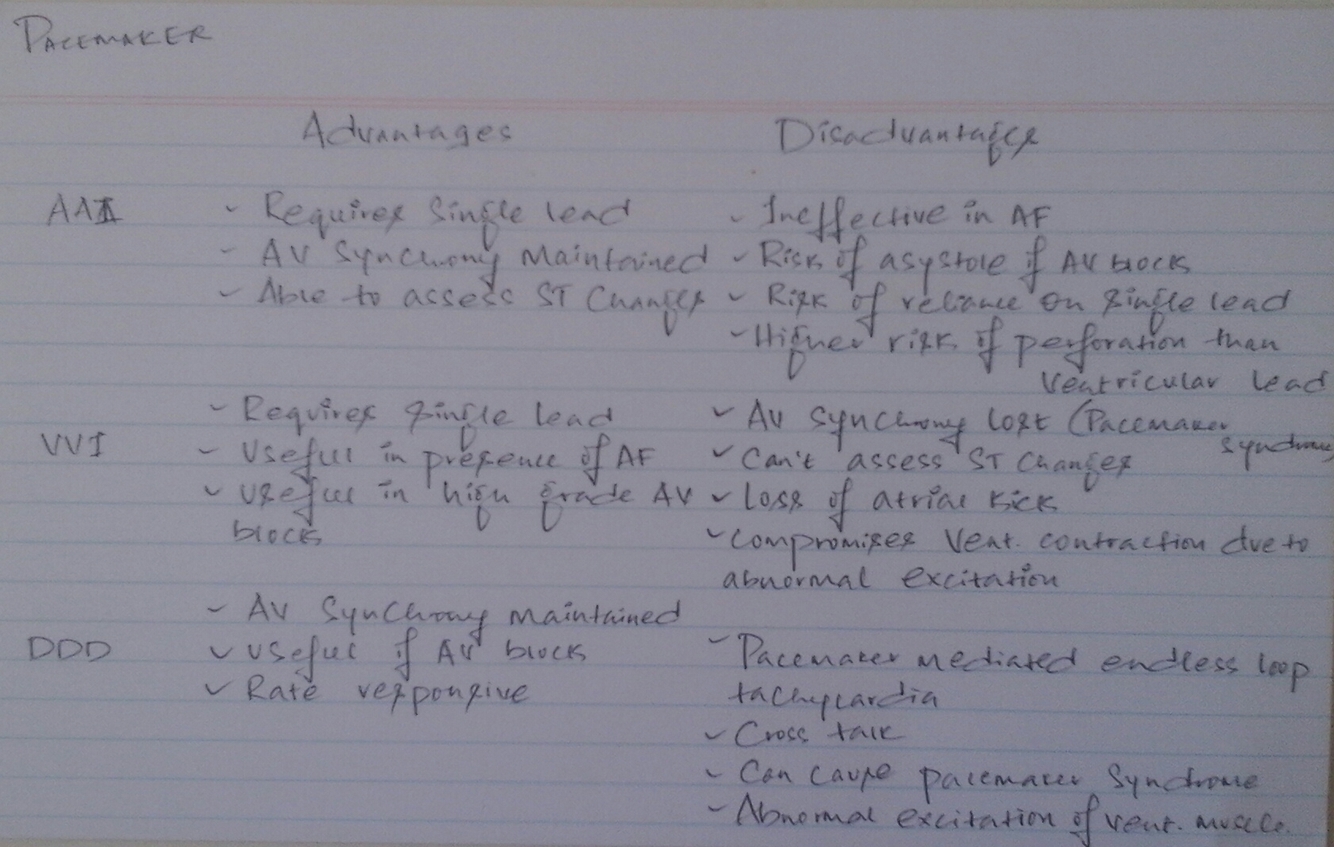 PACEMAKER
Advantages Disadvantages
AAI - Requires Single lead - Ineffective in AF
- AV Synchrony Maintained - Risk of asystole if AV blocks
- Able to assess ST Changes - Risk of reliance on single lead
- Higher risk of perforation than
ventricular lead
- Requires single lead - AV Synchrony lost (Pacemaker
syndrome
VVI - Useful in presence of AF - Can't assess ST Changes
- Useful in high grade AV - Loss of atrial kick
block
- Compromises Vent. contraction due to
abnormal excitation
- AV Synchrony maintained
DDD - Useful if AV block - Pacemaker mediated endless loop
- Rate responsive tachycardia
- Cross talk
- Can cause pacemaker Syndrome
- Abnormal excitation of vent. muscle.